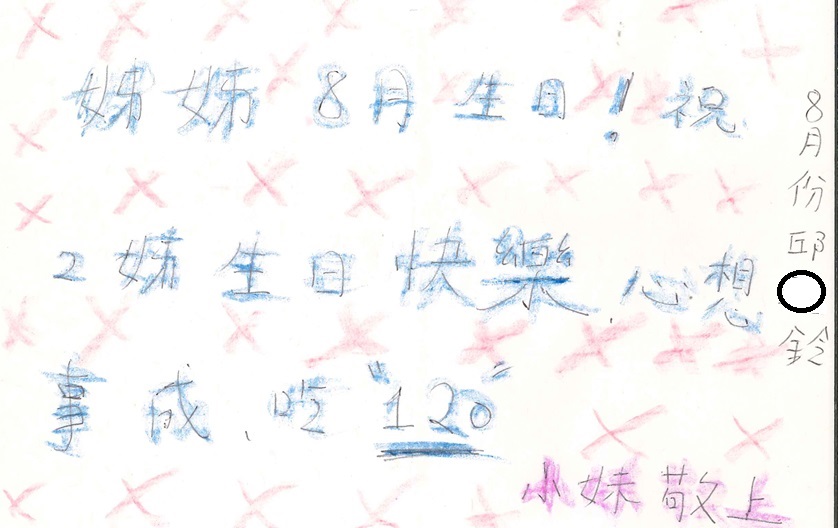 姊姊8月生日!祝
2姊生日快樂、心想
事成、吃"120"
小妹敬上
8月份邱
鈴